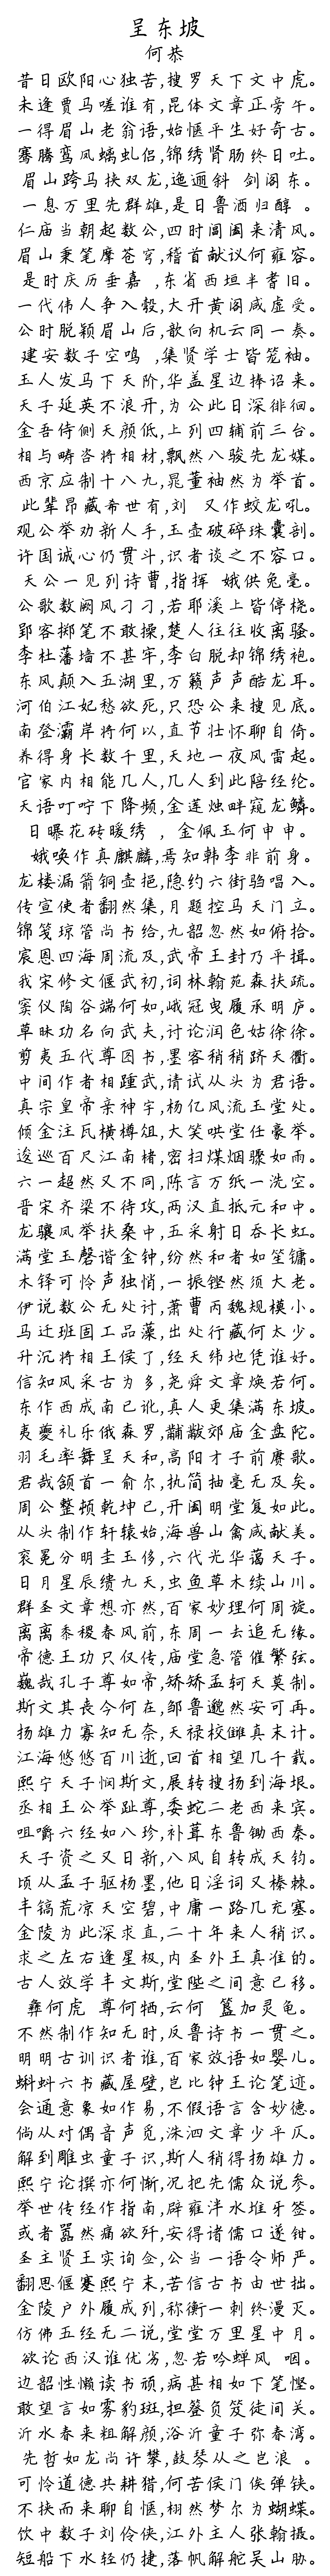 呈东坡
何恭
昔日欧阳心独苦,搜罗天下文中虎。
未逢贾马嗟谁有,昆体文章正旁午。
一得眉山老翁语,始惬平生好奇古。
骞腾鸾凤螭虬侣,锦绣肾肠终日吐。
眉山跨马挟双龙,迤逦斜 剑阁东。
一息万里先群雄,是日鲁酒归醇 。
仁庙当朝起数公,四时阊阖来清风。
眉山秉笔摩苍穹,稽首献议何雍容。
是时庆历垂嘉 ,东省西垣半耆旧。
一代伟人争入彀,大开黄阁咸虚受。
公时脱颖眉山后,歆向机云同一奏。
建安数子空鸣 ,集贤学士皆笼袖。
玉人发马下天阶,华盖星边捧诏来。
天子延英不浪开,为公此日深徘徊。
金吾侍侧天颜低,上列四辅前三台。
相与畴咨将相材,飘然八骏先龙媒。
西京应制十八九,晁董袖然为举首。
此辈昂藏希世有,刘 又作蛟龙吼。
观公举劝新人手,玉壶破碎珠囊剖。
许国诚心仍贯斗,识者谈之不容口。
天公一见列诗曹,指挥 娥供兔毫。
公歌数阕风刁刁,若耶溪上皆停桡。
郢客掷笔不敢操,楚人往往收离骚。
李杜藩墙不甚牢,李白脱却锦绣袍。
东风颠入五湖里,万籁声声酷龙耳。
河伯江妃愁欲死,只恐公来搜见底。
南登灞岸将何以,直节壮怀聊自倚。
养得身长数千里,天地一夜风雷起。
官家内相能几人,几人到此陪经纶。
天语叮咛下降频,金莲烛畔窥龙鳞。
日曝花砖暖绣 ,金佩玉何申申。
娥唤作真麒麟,焉知韩李非前身。
龙楼漏箭铜壶挹,隐约六街驺唱入。
传宣使者翻然集,月题控马天门立。
锦笺琼管尚书给,九韶忽然如俯拾。
宸恩四海周流及,武帝王封乃平揖。
我宋修文偃武初,词林翰苑森扶疏。
窦仪陶谷端何如,峨冠曳履承明庐。
草昧功名向武夫,讨论润色姑徐徐。
剪夷五代尊图书,墨客稍稍跻天衢。
中间作者相踵武,请试从头为君语。
真宗皇帝亲神宇,杨亿风流玉堂处。
倾金注瓦横樽俎,大笑哄堂任豪举。
逡巡百尺江南楮,密扫煤烟骤如雨。
六一超然又不同,陈言万纸一洗空。
晋宋齐梁不待攻,两汉直抵元和中。
龙骧凤举扶桑中,五采射日吞长虹。
满堂玉磬谐金钟,纷然和者如笙镛。
木铎可怜声独悄,一振铿然须大老。
伊说数公无处计,萧曹丙魏规模小。
马迁班固工品藻,出处行藏何太少。
升沉将相王侯了,经天纬地凭谁好。
信知风采古为多,尧舜文章焕若何。
东作西成南已讹,真人更集满东坡。
夷夔礼乐俄森罗,黼黻郊庙金盘陀。
羽毛率舞呈天和,高阳才子前赓歌。
君哉颔首一俞尔,执简抽毫无及矣。
周公整顿乾坤已,开阖明堂复如此。
从头制作轩辕始,海兽山禽咸献美。
衮冕分明圭玉侈,六代光华蔼天子。
日月星辰缋九天,虫鱼草木续山川。
群圣文章想亦然,百家妙理何周旋。
离离黍稷春风前,东周一去追无缘。
帝德王功只仅传,庙堂急管催繁弦。
巍哉孔子尊如帝,矫矫孟轲天莫制。
斯文其丧今何在,邹鲁邈然安可再。
扬雄力寡知无奈,天禄校雠真末计。
江海悠悠百川逝,回首相望几千载。
熙宁天子悯斯文,展转搜扬到海垠。
丞相王公举趾尊,委蛇二老西来宾。
咀嚼六经如八珍,补葺东鲁锄西秦。
天子资之又日新,八风自转成天钧。
顷从孟子驱杨墨,他日淫词又榛棘。
丰镐荒凉天空碧,中庸一路几充塞。
金陵为此深求直,二十年来人稍识。
求之左右逢星极,内圣外王真准的。
古人效学丰文斯,堂陛之间意已移。
彝何虎 尊何牺,云何 簋加灵龟。
不然制作知无时,反鲁诗书一贯之。
明明古训识者谁,百家效语如婴儿。
蝌蚪六书藏屋壁,岂比钟王论笔迹。
会通意象如作易,不假语言含妙德。
倘从对偶音声觅,洙泗文章少平仄。
解到雕虫童子识,斯人稍得扬雄力。
熙宁论撰亦何惭,况把先儒众说参。
举世传经作指南,辟雍泮水堆牙签。
或者嚣然痛欲歼,安得诸儒口遂钳。
圣主贤王实询佥,公当一语令师严。
翻思偃蹇熙宁末,苦信古书由世拙。
金陵户外履成列,称衡一刺终漫灭。
仿佛五经无二说,堂堂万里星中月。
欲论西汉谁优劣,忽若吟蝉风 咽。
边韶性懒读书顽,病甚相如下笔悭。
敢望言如雾豹斑,担簦负笈徒间关。
沂水春来粗解颜,浴沂童子弥春湾。
先哲如龙尚许攀,鼓琴从之岂浪 。
可怜道德共耕猎,何苦侯门俟弹铗。
不挟而来聊自惬,栩然梦尔为蝴蝶。
饮中数子刘伶侠,江外主人张翰摄。
短船下水轻仍捷,落帆解舵吴山胁。